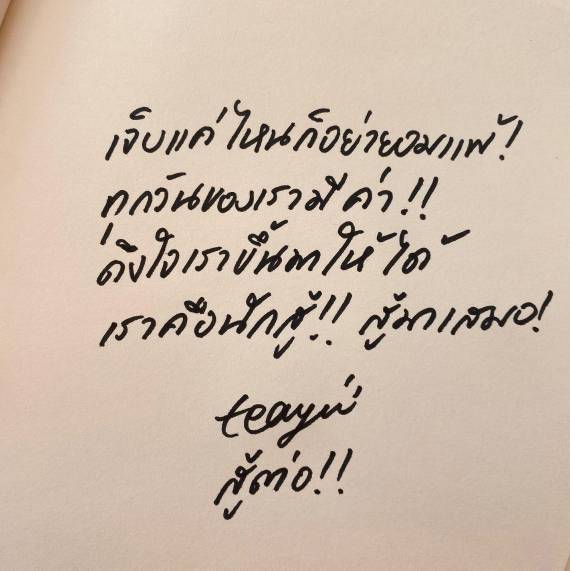 เจ็บแค่ไหนก็อย่ายอมแพ้!
ทุกวันของเรามีค่า!!
ดึงใจเราขึ้นมาให้ได้
เราคือนักสู้!! สู้มาเสมอ!
สู้ต่อ!!